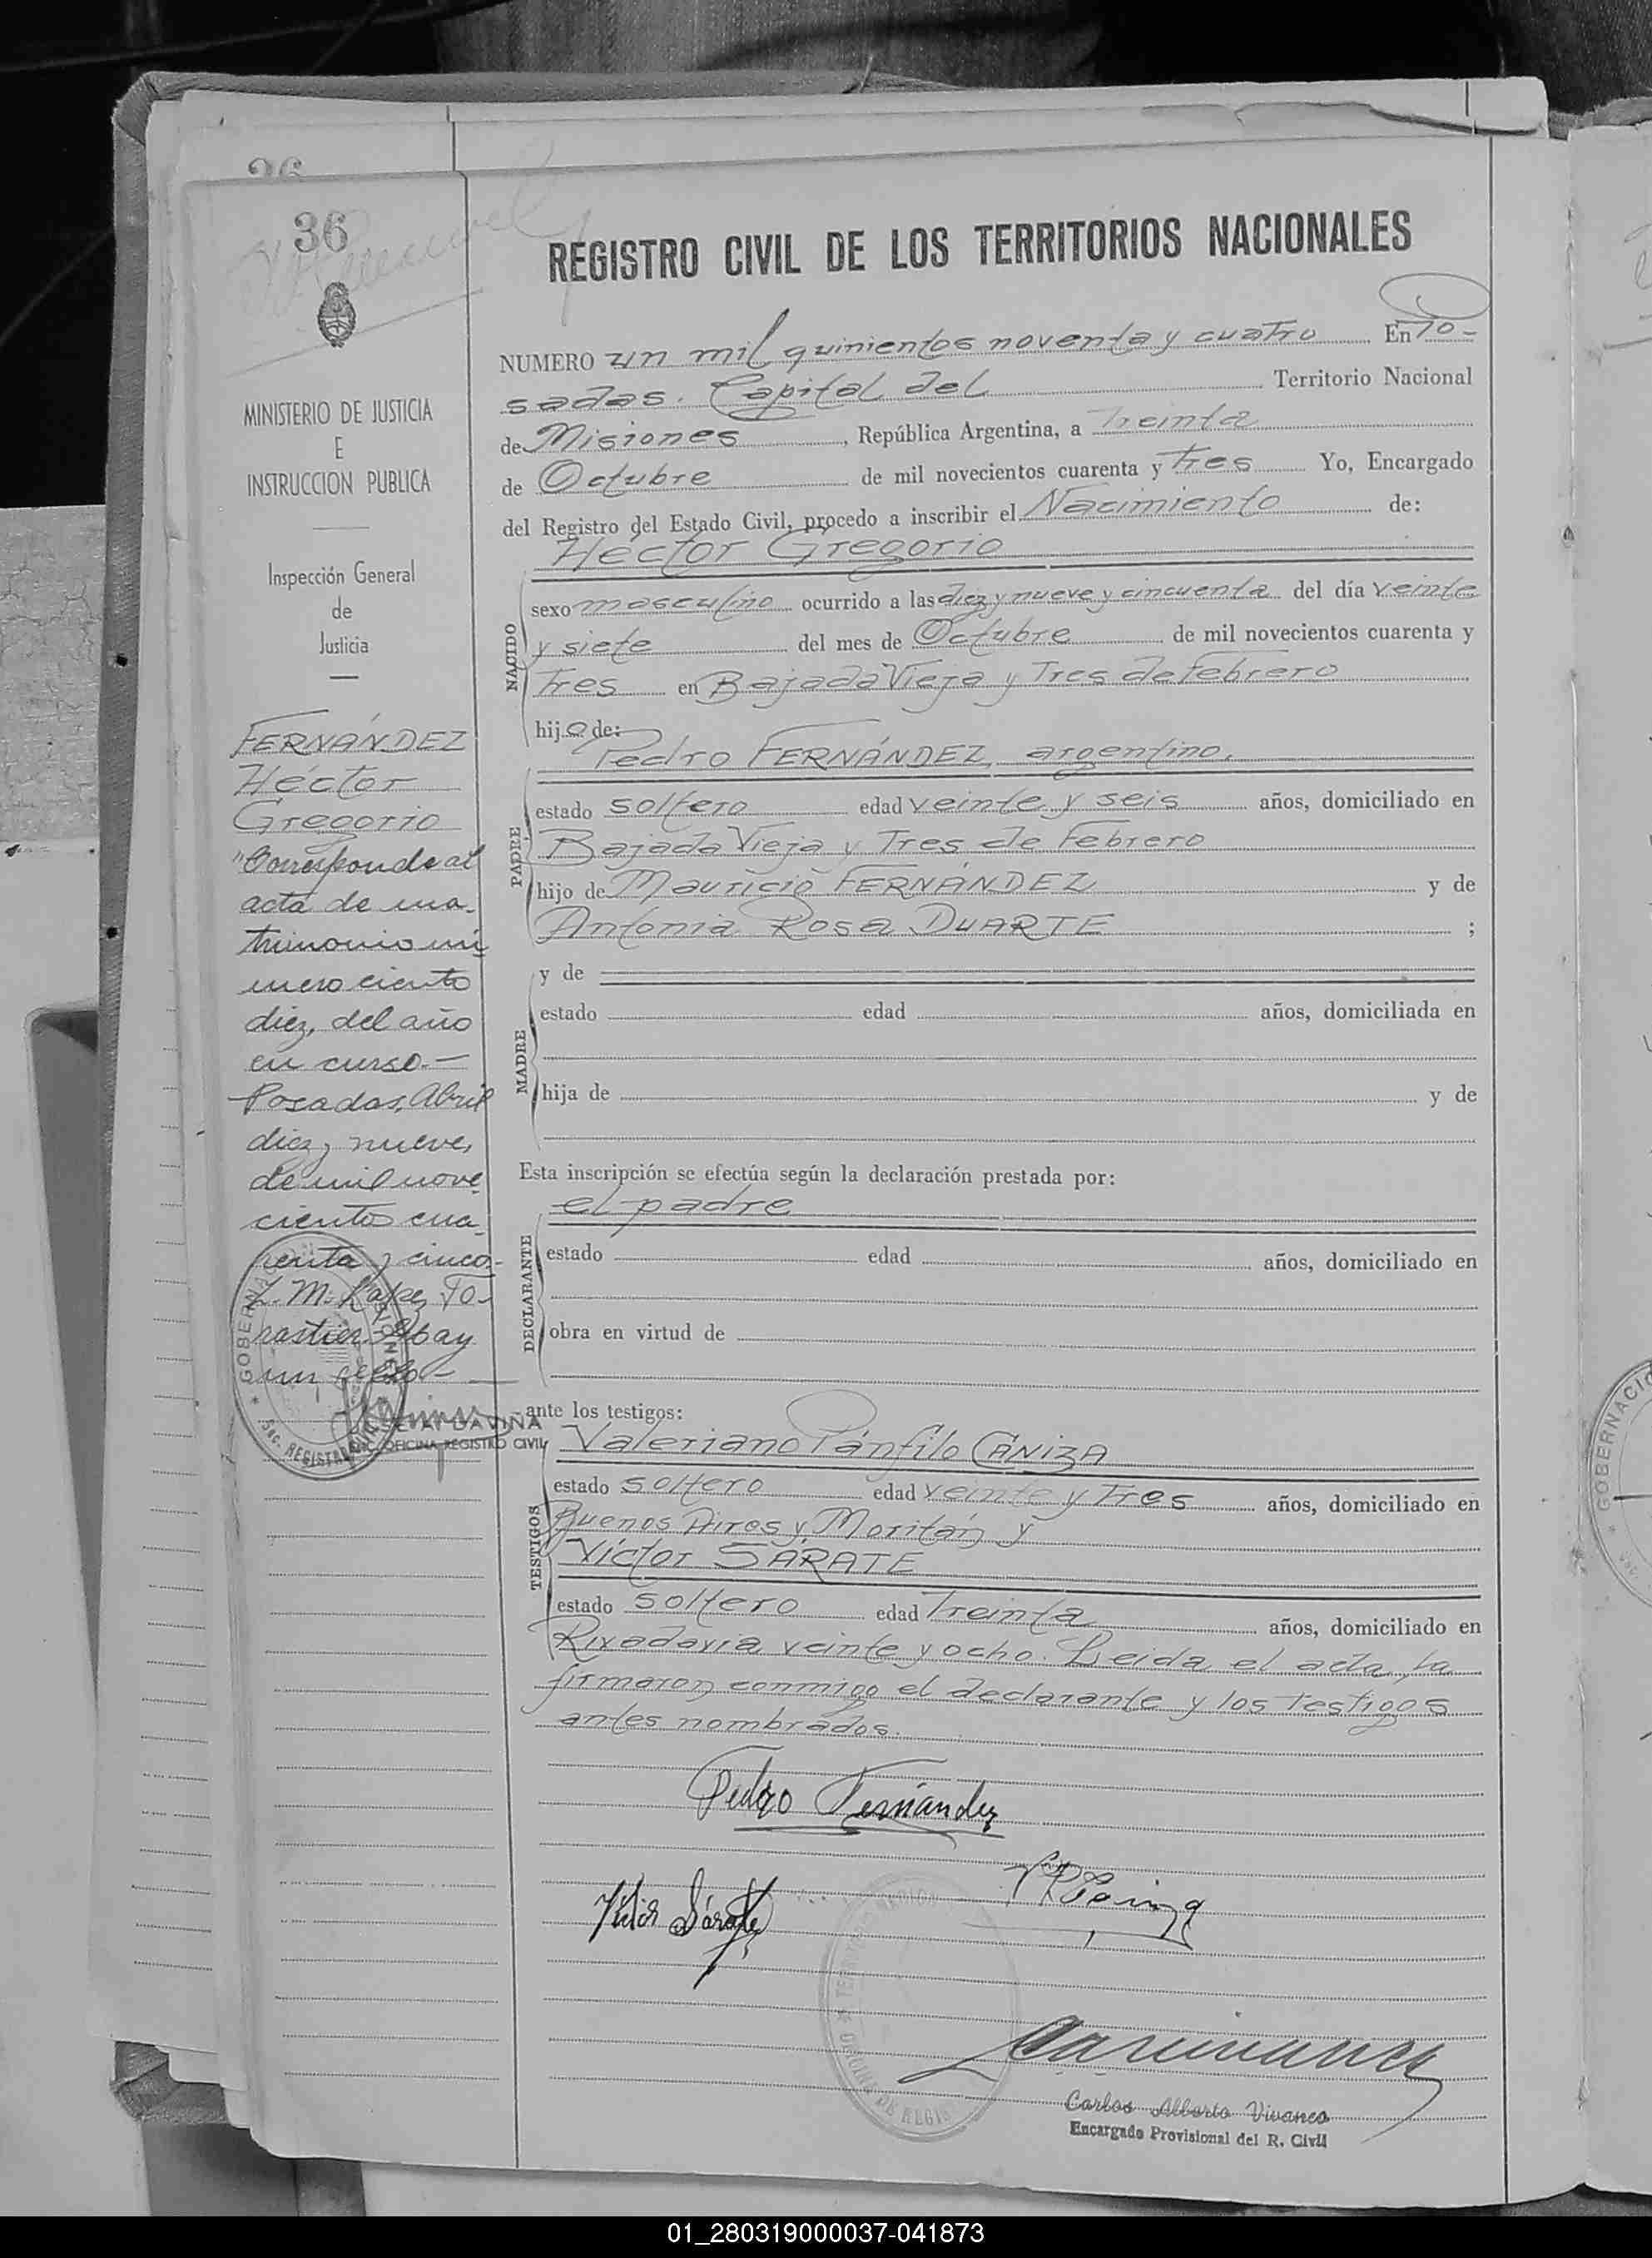 36
36
MINISTERIO DE JUSTICIA
E
INSTRUCCION PUBLICA
Inspección General
de
Justicia
FERNÁNDEZ
Héctor
Gregorio
"Corresponde al
acta de ma-
trimonio nú
mero ciento
diez, del año
en curso.-
Posadas, Abril
diez y nueve,
de mil nove
ciento cua
renta y cinco-
L. M. López To-
rastier. Hay
un sello-
GOBERNAC
Sec. REGISTR
OFICINA REGISTRO CIVIL
REGISTRO CIVIL DE LOS TERRITORIOS NACIONALES
NUMERO un mil quinientos noventa y cuatro En Po-
sadas. Capital del Territorio Nacional
de Misiones, República Argentina, a Treinta
de Octubre de mil novecientos cuarenta y Tres Yo, Encargado
del Registro del Estado Civil, procedo a inscribir el Nacimiento de:
Héctor Gregorio
NACIDO
sexo masculino ocurrido a las diez y nueve y cincuenta del día veinte
y siete del mes de Octubre de mil novecientos cuarenta y
Tres en Bajada Vieja y Tres de Febrero
hijo de:
Pedro FERNÁNDEZ, argentino.
PADRE
estado soltero edad veinte y seis años, domiciliado en
Bajada Vieja y Tres de Febrero
hijo de Mauricio FERNÁNDEZ y de
Antonia Rosa DUARTE ;
y de
MADRE
estado edad años, domiciliada en
hija de y de
Esta inscripción se efectúa según la declaración prestada por:
el padre
DECLARANTE
estado edad años, domiciliado en
obra en virtud de
ante los testigos:
Valeriano Pánfilo CÁNIZA
TESTIGOS
estado soltero edad veinte y Tres años, domiciliado en
Buenos Aires y Moritán y
Víctor SÁRATE
estado soltero edad Treinta años, domiciliado en
Rivadavia veinte y ocho. Leída el acta, la
firmaron conmigo el declarante y los Testigos
antes nombrados.
Pedro Fernández
Víctor Sárate
Carlos Alberto Vivanco
Encargado Provisional del R. Civil
GOBERNACIO
01_280319000037-041873